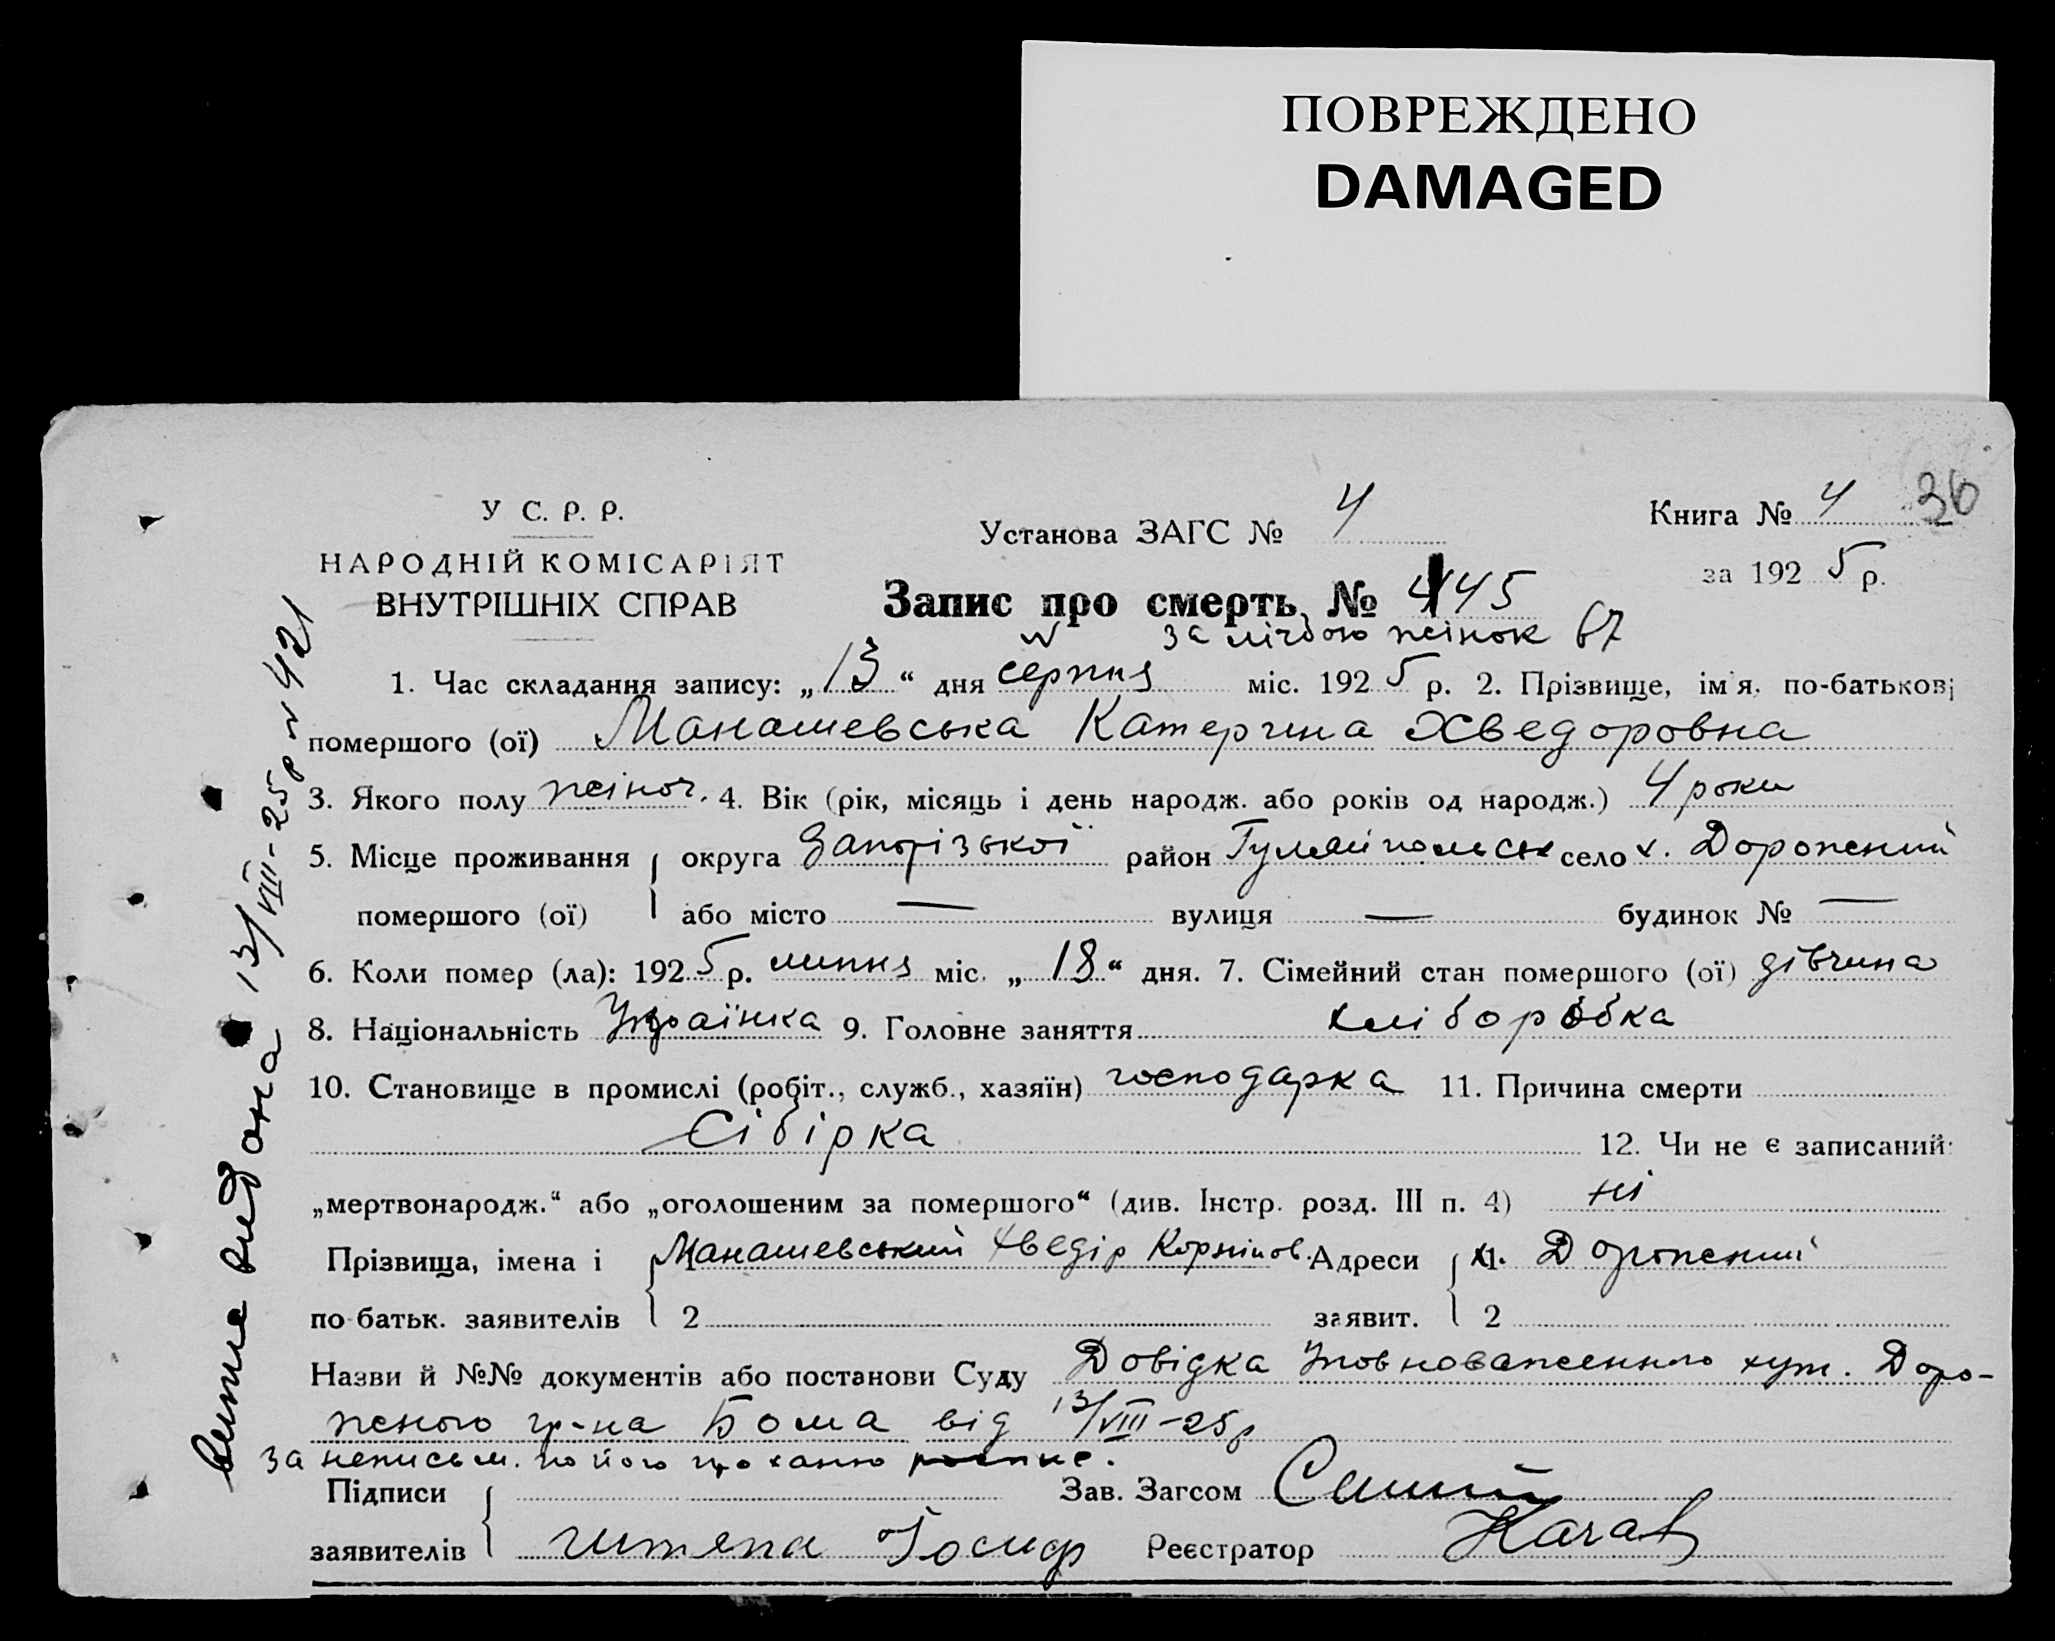 ПОВРЕЖДЕНО
DAMAGED
У С. Р. Р.
НАРОДНІЙ КОМІСАРІЯТ
ВНУТРІШНІХ СПРАВ
Установа ЗАГС № 4
Книга № 4 36
за 1925 р.
Запис про смерть, № 445
за лічбою жінок 67
1. Час складання запису: „13“ дня серпня міс. 1925 р. 2. Прізвище, ім'я, по-батькові
помершого (ої) Манашевська Катерина Хведоровна
3. Якого полу жіноч. 4. Вік (рік, місяць і день народж. або років од народж.) 4 роки
5. Місце проживання округа Запорізької район Гуляйпольськ село х. Дорожений
помершого (ої) або місто — вулиця — будинок № —
6. Коли помер (ла): 1925 р. липня міс. „18“ дня. 7. Сімейний стан помершого (ої) дівчина
8. Національність Українка 9. Головне заняття хліборобка
10. Становище в промислі (робіт., служб., хазяїн) господарка 11. Причина смерти
Сібірка 12. Чи не є записаний
„мертвонародж.“ або „оголошеним за помершого“ (див. Інстр. розд. III п. 4) ні
Прізвища, імена і 1 Манашевський Хведір Корніїов. Адреси 1 х. Дорожений
по-батьк. заявителів 2 заявит. 2
Назви й №№ документів або постанови Суду Довідка Уповноваженного хут. Доро-
женого гр-на Бома від 13/VIII-25р
за неписьм. по його проханню
Підписи Зав. Загсом
заявителів Реєстратор
видана 13/VIII-25р № 421